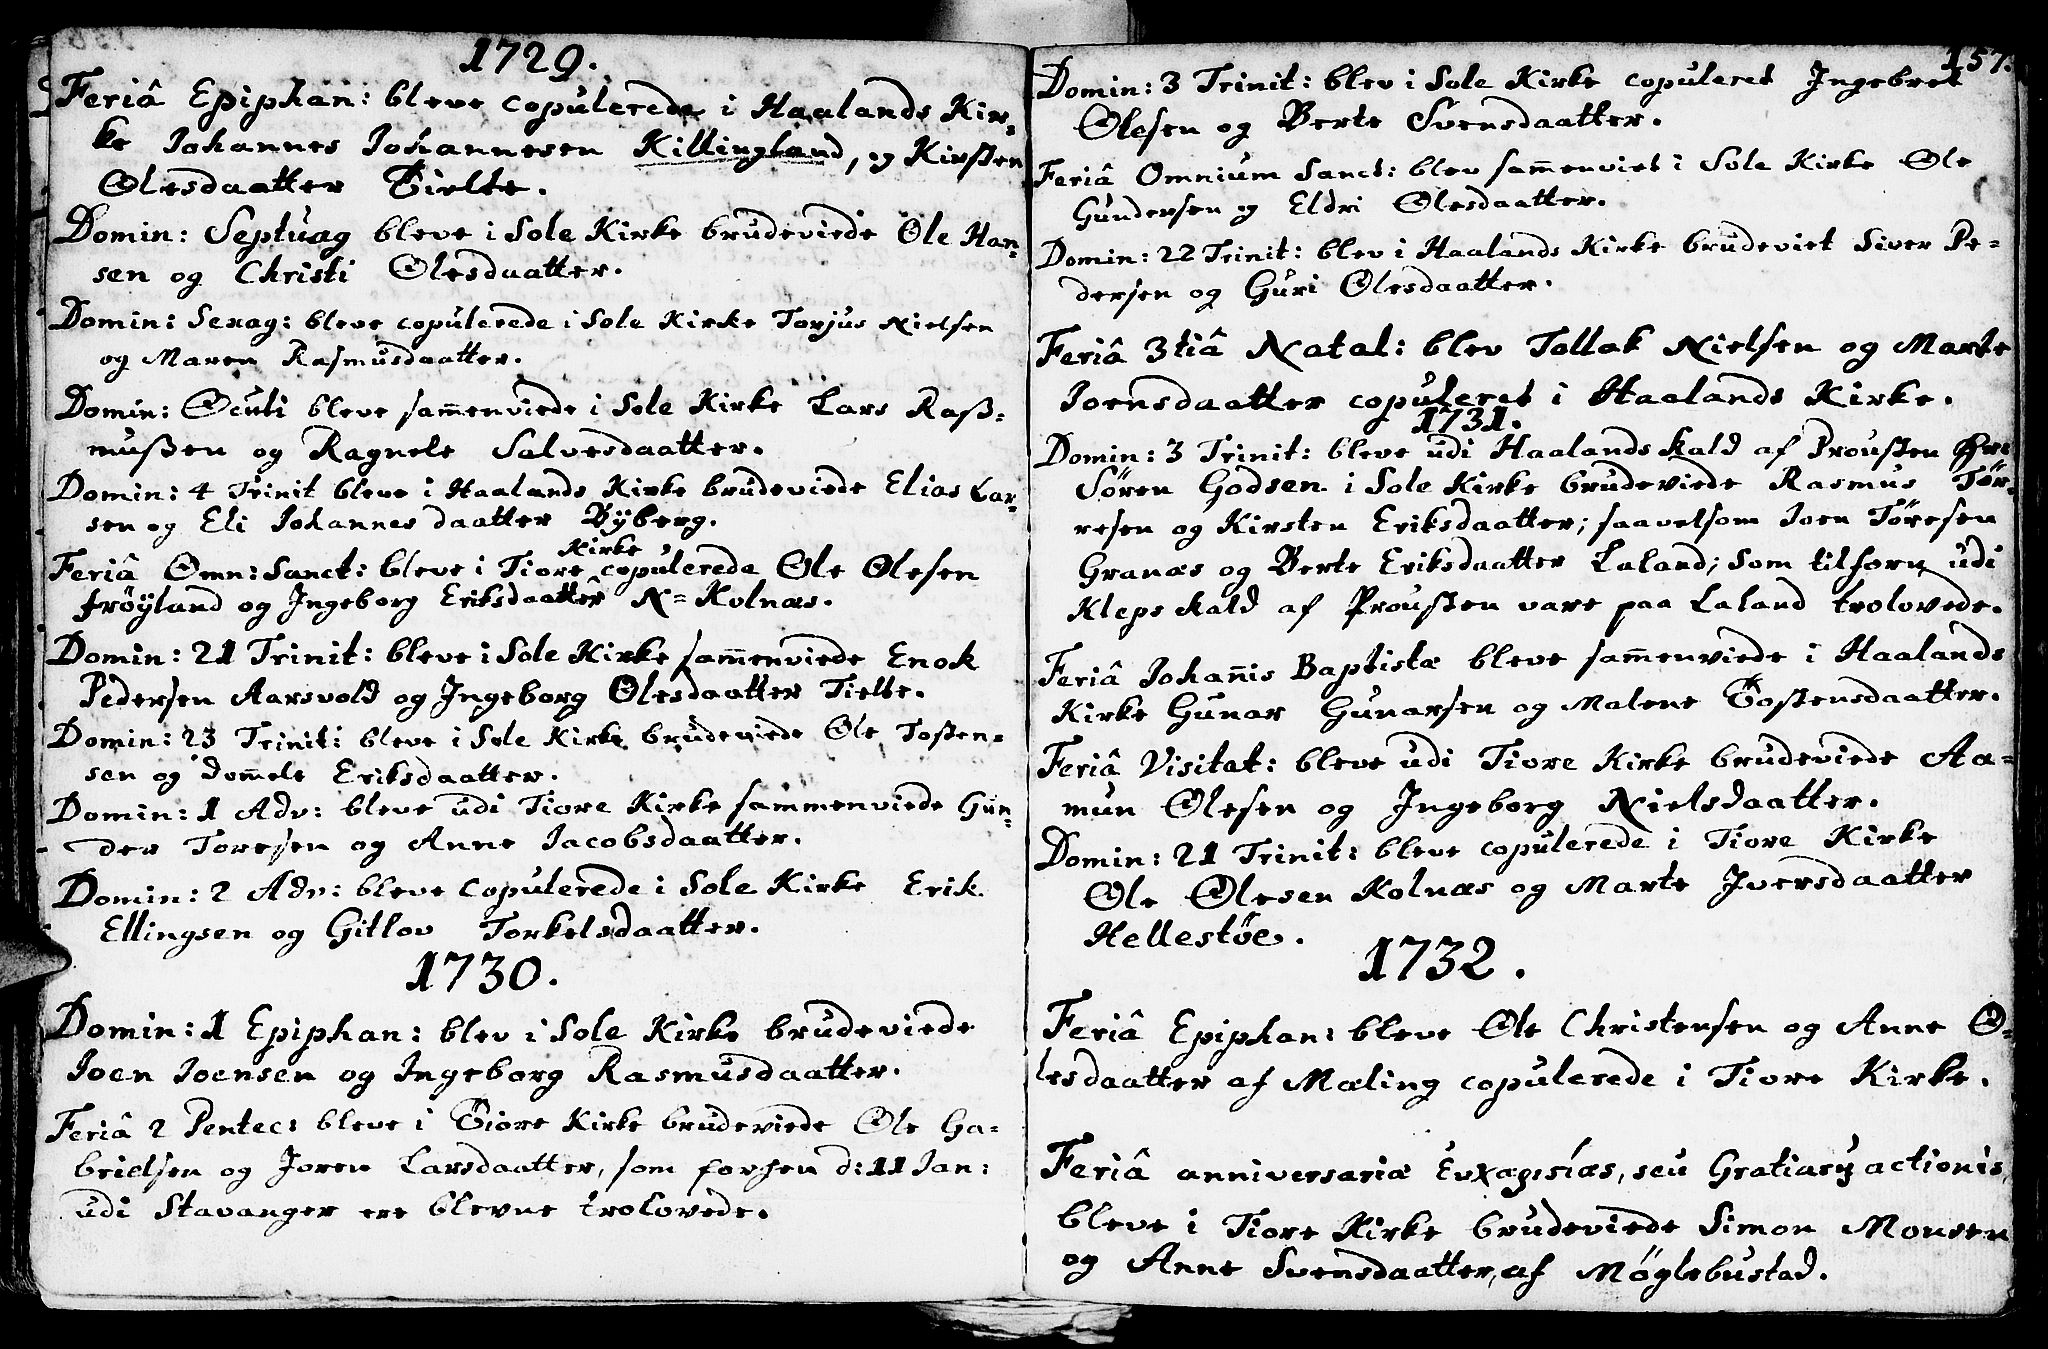 1729.
Feriâ Epiphan: bleve copulerede i Haalands Kir=
ke Johannes Johannesen Killingland, og Kirsten
Olesdaatter Tielte.
Domin: Septuag bleve i Sole Kirke brudeviede Ole Han=
sen og Christi Olesdaatter.
Domin: Sexag: bleve copulerede i Sole Kirke Torjus Nielsen
og Maren Rasmusdaatter.
Domin: Oculi bleve sam̅enviede i Sole Kirke Lars Raß=
mußen og Ragnele Salvesdaatter.
Domin: 4 Trinit bleve i Haalands Kirke brudeviede Elias Lar=
sen og Eli Johannesdaatter Bÿberg.
Kirke
Feriâ Omn: Sanct: bleve i Tiore copulerede Ole Olesen
frøÿland og Ingeborg Eriksdaatter N=Kolnæs.
Domin: 21 Trinit: bleve i Sole Kirke sam̅enviede Enok
Pedersen Aarsvold og Ingeborg Olesdaatter Tielte.
Domin: 23 Trinit: bleve i Sole Kirke brudeviede Ole Tosten=
sen og Dom̅ele Eriksdaatter.
Domin: 1 Adv: bleve udi Tiore Kirke sammenviede Gun=
der Toresen og Anne Jacobsdaatter.
Domin: 2 Adv: bleve copulerede i Sole Kirke Erik
Ellingsen og Gitlov Torkelsdaatter.
1730.
Domin: 1 Epiphan: blev i Sole Kirke brudeviede
Joen Joensen og Ingeborg Rasmusdaatter.
Feriâ 2 Pentec: bleve i Tiore Kirke brudeviede Ole Ga=
brielsen og Joren Larsdaatter, som forhen d: 11 Jan:
udi Stavanger ere blevne trolovede.
157.
Domin: 3 Trinit: blev i Sole Kirke copuleret Ingebret
Olesen og Berte Svensdaatter.
Feriâ Omnium Sanct: blev sam̅enviet i Sole Kirke Ole
Gundersen og Eldri Olesdaatter.
Domin: 22 Trinit: blev i Haalands Kirke brudeviet Siver Pe=
dersen og Guri Olesdaatter.
Feriâ 3tiâ Natal: blev Tollak Nielsen og Marte
Joensdaatter copuleret i Haalands Kirke.
1731.
Domin: 3 Trinit: bleve udi Haalands Kald af Proußen
Søren Godsen i Sole Kirke brudeviede Rasmus Tør=
resen og Kirsten Eriksdaatter; saavelsom Joen Tøresen
Granæs og Berte Eriksdaatter Laland; som tilforn udi
Kleps Kald af Proußen vare paa Laland trolovede.
Feriâ Johan̅is Baptistæ bleve sam̅enviede i Haalands
Kirke Gunar Gunarsen og Malene Tostensdaatter.
Feriâ Visitat: bleve udi Tiore Kirke brudeviede Aa=
mun Olesen og Ingeborg Nielsdaatter.
Domin: 21 Trinit: bleve copulerede i Tiore Kirke
Ole Olesen Kolnæs og Marte Iversdaatter
Hellestøe.
1732.
Feriâ Epiphan: bleve Ole Christensen og Anne O=
lesdaatter af Mæling copulerede i Tiore Kirke.
Feriâ anniversariæ seu actionis,
bleve i Tiore Kirke brudeviede Simon Monsen
og Anne Svensdaatter, af Møglebustad.